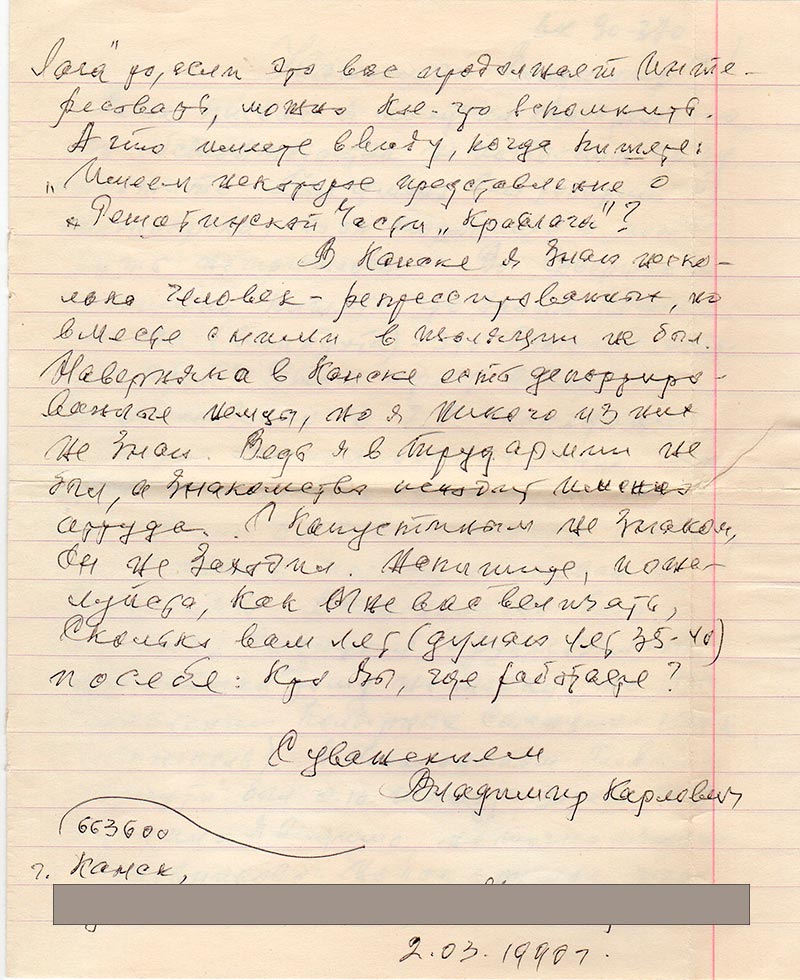 лага" то, если это вас продолжает инте-
ресовать, можно кое-что вспомнить.
А что имеете ввиду, когда пишете:
„Имеем некоторое представление о
Решотинской части „Краслага"?
В Канске я знал неско-
лько человек - репрессированных, но
вместе с ними в изоляции не был.
Наверняка в Канске есть депортиро-
ванные немцы, но я никого из них
не знал. Ведь я в трудармии не
был, а знакомства исходят именно
оттуда. С Капустиным не знаком,
он не заходил. Напишите, пожа-
луйста, как мне вас величать,
сколько вам лет (думаю лет 35-40)
по себе: Кто Вы, где работаете?
С уважением
Владимир Карлович
663600
г. Канск,
2.03.1990 г.